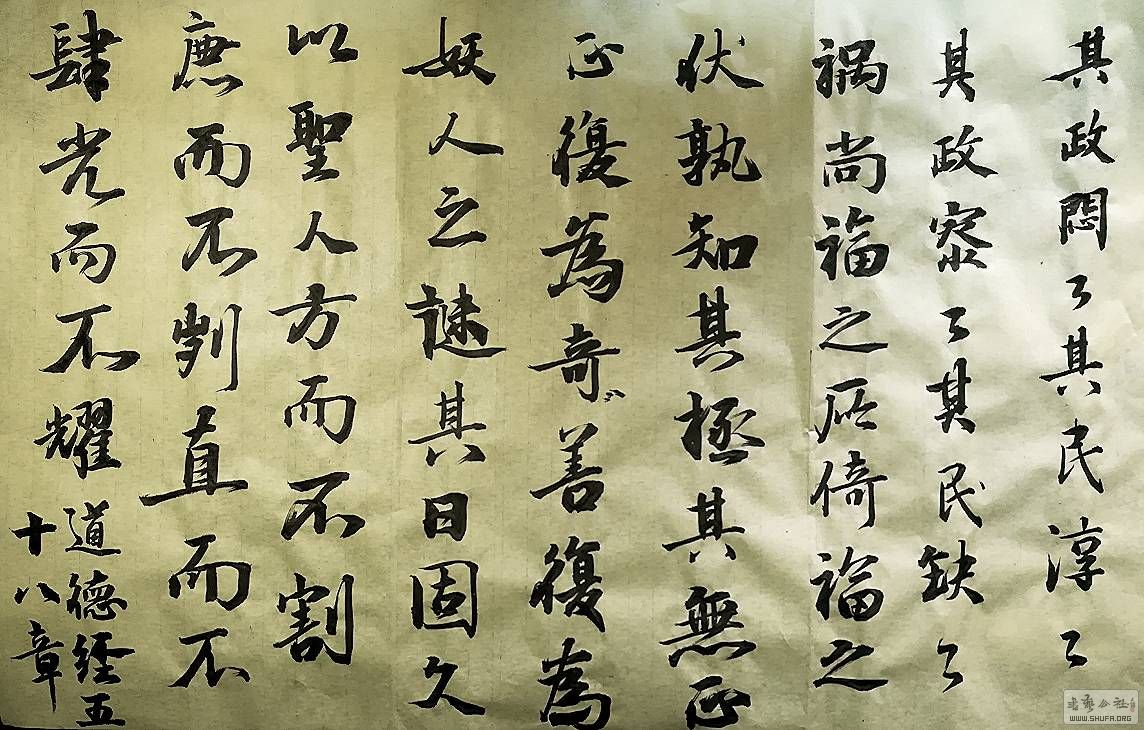 其政悶々其民淳々
其政察々其民缺々
禍尚福之所倚福之
伏孰知其極其無正
正復為奇善復為
妖人之謎其日固久
以聖人方而不割
廉而不刿直而不
肆光而不耀
道德经五
十八章
書法公社
WWW.SHUFA.ORG